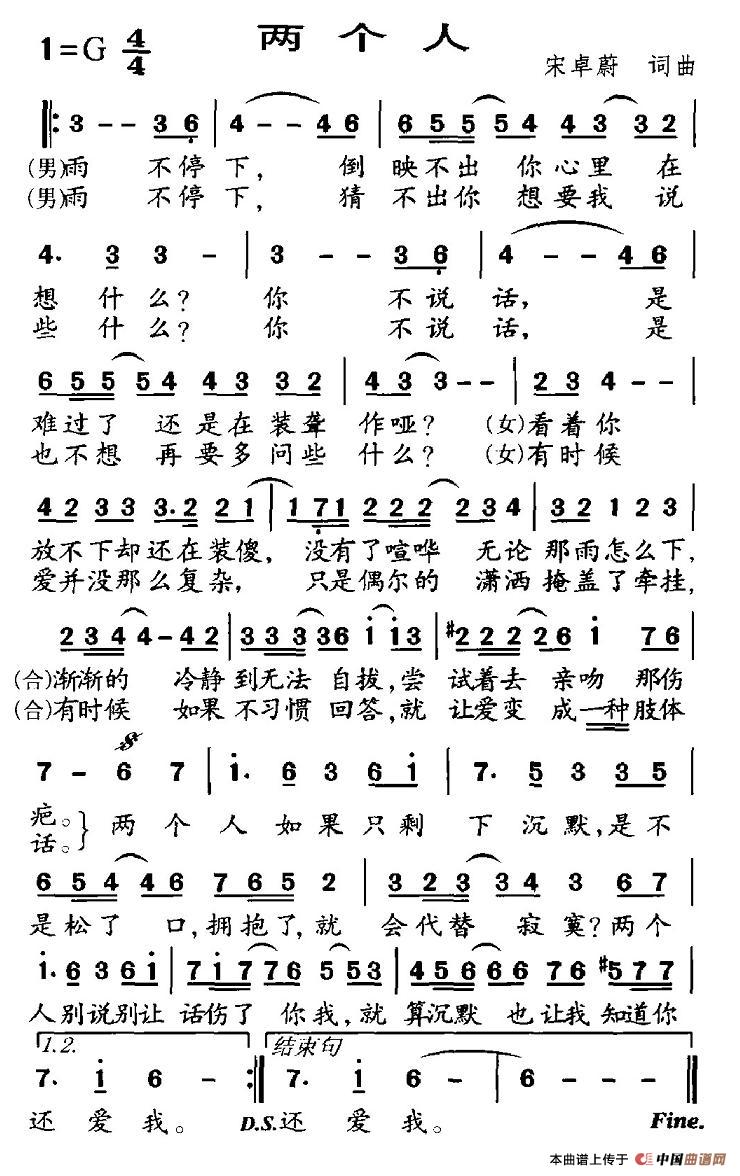 两个人
1=G 4/4
宋卓蔚 词曲
3 - - 3 6 | 4 - - 4 6 | 6 5 5 5 4 4 3 3 2 |
(男)雨 不停下, 倒映不出 你心里在
(男)雨 不停下, 猜不出你 想要我说
4. 3 3 - | 3 - - 3 6 | 4 - - 4 6 |
想什么? 你 不说话, 是
些什么? 你 不说话, 是
6 5 5 5 4 4 3 3 2 | 4 3 3 - - | 2 3 4 - - |
难过了 还是在装聋 作哑? (女)看着你
也不想 再要多问些 什么? (女)有时候
4 2 3 3 3. 2 2 1 | 1 7 1 2 2 2 2 3 4 | 3 2 1 2 3 |
放不下却还在装傻, 没有了喧哗 无论那雨怎么下,
爱并没那么复杂, 只是偶尔的 潇洒掩盖了牵挂,
2 3 4 4 - 4 2 | 3 3 3 3 6 i i 3 | #2 2 2 2 6 i 7 6 |
(合)渐渐的 冷静到无法自拔,尝 试着去亲吻那伤
(合)有时候 如果不习惯回答,就 让爱变成一种肢体
7 - 6 7 | i. 6 3 6 i | 7. 5 3 3 5 |
疤。
话。} 两个人如果只剩下沉默,是不
6 5 4 4 6 7 6 5 2 | 3 2 3 3 4 3 6 7 |
是松了口,拥抱了,就 会代替寂寞?两个
i. 6 3 6 i | 7 i 7 7 6 5 5 3 | 4 5 6 6 6 7 6 #5 7 7 |
人别说别让 话伤了你我,就 算沉默也让我知道你
1.2. 结束句
7. i 6 - :‖ 7. i 6 - | 6 - - - ‖
还爱我。 D.S.还爱我。 Fine.
本曲谱上传于 中国曲谱网